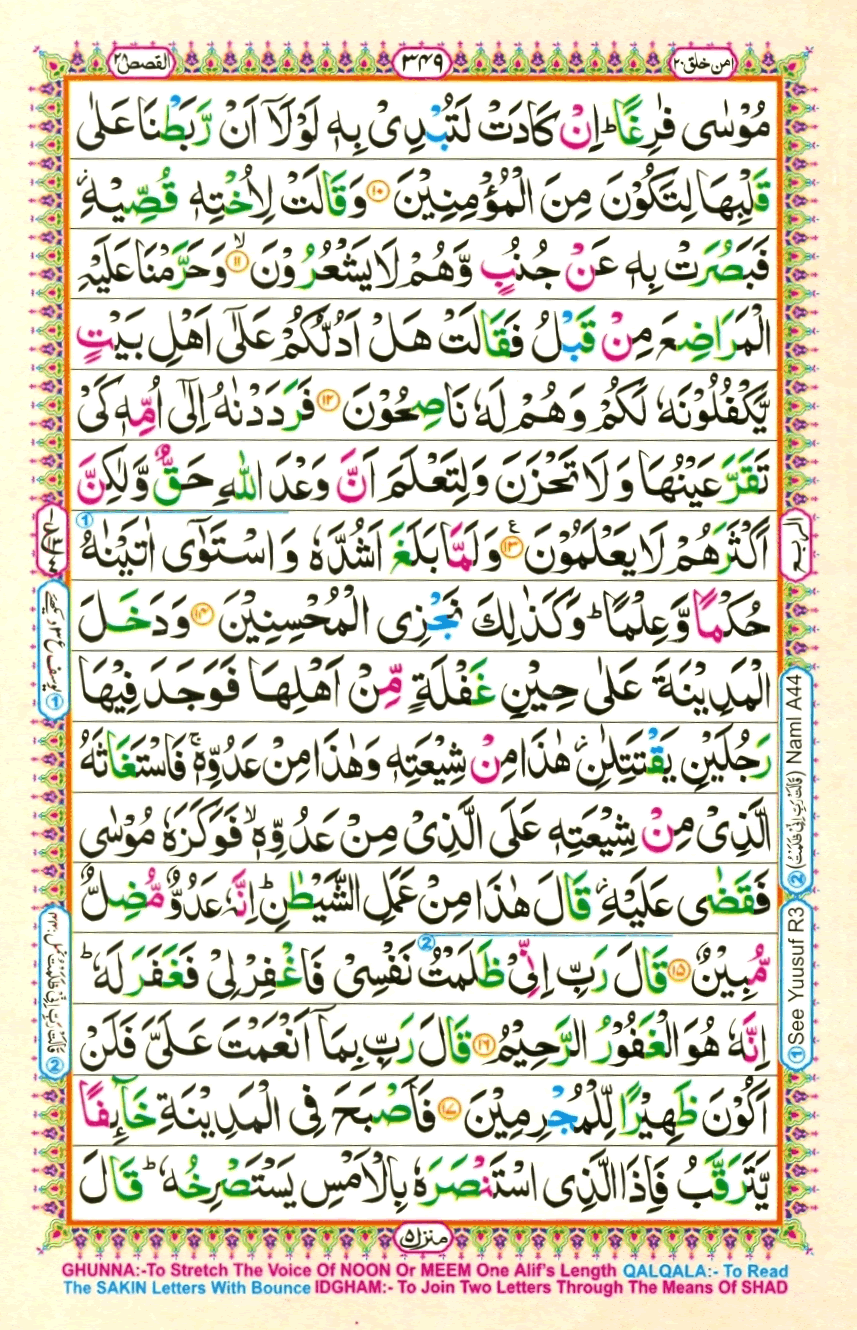 امن خلق ٢٠
٣٤٩
القصص ٢٨
مُوْسٰى فٰرِغًا ؕ اِنْ كَادَتْ لَتُبْدِیْ بِهٖ لَوْلَاۤ اَنْ رَّبَطْنَا عَلٰى
قَلْبِهَا لِتَكُوْنَ مِنَ الْمُؤْمِنِیْنَ ١٠ وَقَالَتْ لِاُخْتِهٖ قُصِّیْهِ ؗ
فَبَصُرَتْ بِهٖ عَنْ جُنُبٍ وَّهُمْ لَا یَشْعُرُوْنَ ۙ ١١ وَحَرَّمْنَا عَلَیْهِ
الْمَرَاضِعَ مِنْ قَبْلُ فَقَالَتْ هَلْ اَدُلُّكُمْ عَلٰۤى اَهْلِ بَیْتٍ
یَّكْفُلُوْنَهٗ لَكُمْ وَهُمْ لَهٗ نَاصِحُوْنَ ١٢ فَرَدَدْنٰهُ اِلٰۤى اُمِّهٖ كَیْ
تَقَرَّ عَیْنُهَا وَلَا تَحْزَنَ وَلِتَعْلَمَ اَنَّ وَعْدَ اللّٰهِ حَقٌّ وَّلٰكِنَّ
اَكْثَرَهُمْ لَا یَعْلَمُوْنَ ١٣ ع وَلَمَّا بَلَغَ اَشُدَّهٗ وَاسْتَوٰۤى اٰتَیْنٰهُ
حُكْمًا وَّعِلْمًا ؕ وَكَذٰلِكَ نَجْزِی الْمُحْسِنِیْنَ ١٤ وَدَخَلَ
الْمَدِیْنَةَ عَلٰى حِیْنِ غَفْلَةٍ مِّنْ اَهْلِهَا فَوَجَدَ فِیْهَا
رَجُلَیْنِ یَقْتَتِلٰنِ ؗ هٰذَا مِنْ شِیْعَتِهٖ وَهٰذَا مِنْ عَدُوِّهٖ ۚ فَاسْتَغَاثَهُ
الَّذِیْ مِنْ شِیْعَتِهٖ عَلَى الَّذِیْ مِنْ عَدُوِّهٖ ۙ فَوَكَزَهٗ مُوْسٰى
فَقَضٰى عَلَیْهِ ؗ قَالَ هٰذَا مِنْ عَمَلِ الشَّیْطٰنِ ؕ اِنَّهٗ عَدُوٌّ مُّضِلٌّ
مُّبِیْنٌ ١٥ قَالَ رَبِّ اِنِّیْ ظَلَمْتُ نَفْسِیْ فَاغْفِرْ لِیْ فَغَفَرَ لَهٗ ؕ
اِنَّهٗ هُوَ الْغَفُوْرُ الرَّحِیْمُ ١٦ قَالَ رَبِّ بِمَاۤ اَنْعَمْتَ عَلَیَّ فَلَنْ
اَكُوْنَ ظَهِیْرًا لِّلْمُجْرِمِیْنَ ١٧ فَاَصْبَحَ فِی الْمَدِیْنَةِ خَآىِٕفًا
یَّتَرَقَّبُ فَاِذَا الَّذِی اسْتَنْصَرَهٗ بِالْاَمْسِ یَسْتَصْرِخُهٗ ؕ قَالَ
الربع
② (قَالَتْ رَبِّ اِنِّیْ ظَلَمْتُ) Naml A44
① See Yuusuf R3
منزل ٥
GHUNNA:-To Stretch The Voice Of NOON Or MEEM One Alif's Length QALQALA:- To Read
The SAKIN Letters With Bounce IDGHAM:- To Join Two Letters Through The Means Of SHAD